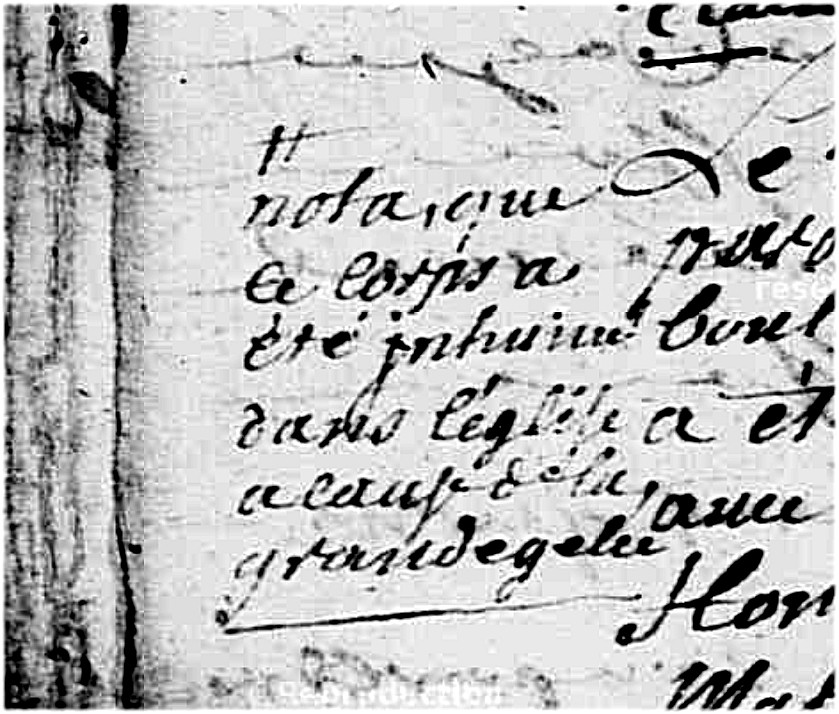 #
nota, que
ce corps a
été inhumé
dans l'églìse
a cause de la
grande gelée
De
paro
boul
a ét
avec
Hon
Mat
Reproduction